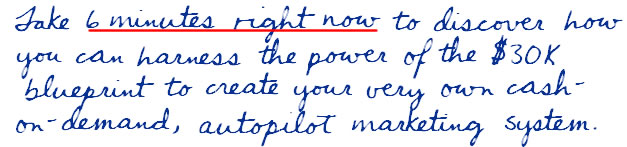 Take 6 minutes right now to discover how
you can harness the power of the $30K
blueprint to create your very own cash-
on-demand, autopilot marketing system.